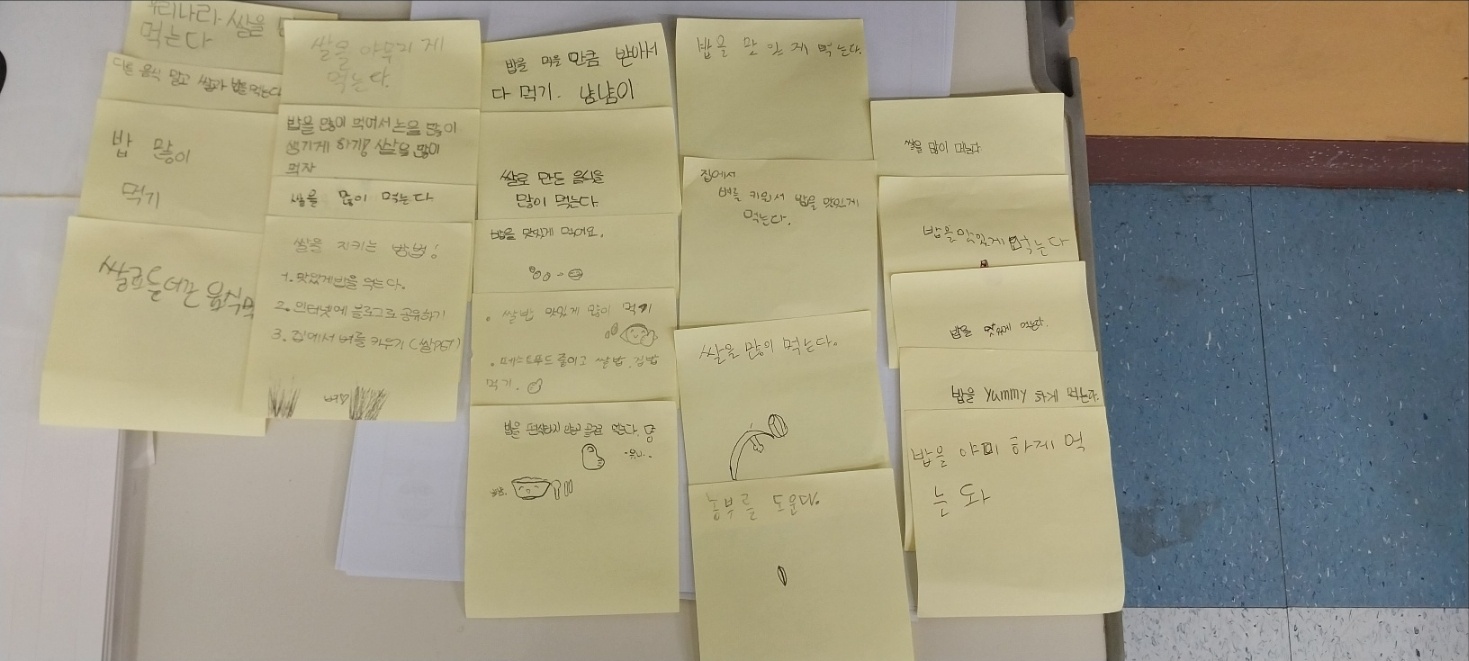 우리나라 쌀을
먹는다
다른 음식 말고 쌀과 밥을 먹는다
밥 많이
먹기
쌀로 만든 음식
쌀을 야무지게
먹는다.
밥을 많이 먹어서 논을 많이
생기게 하기! 쌀밥을 많이
먹자
쌀을 많이 먹는다
쌀을 지키는 방법!
1. 맛있게 밥을 먹는다.
2. 인터넷에 블로그로 공유하기
3. 집에서 벼를 키우기 (쌀PET)
벼
밥을 먹을 만큼 받아서
다 먹기. 냠냠이
쌀로 만든 음식을
많이 먹는다
밥을 맛있게 먹어요.
. 쌀밥 맛있게 많이 먹기
. 페스트푸드 줄이고 쌀밥, 집밥
먹기.
밥을 편식하지 않고 골고루 먹는다.
밥을 맛있게 먹는다.
집에서
벼를 키워서 밥을 맛있게
먹는다.
쌀을 많이 먹는다.
농부를 도운다.
쌀을 많이 먹는다
밥을 맛있게 먹는다
밥을 맛있게 먹는다.
밥을 yummy 하게 먹는다.
밥을 야미 하게 먹
는 다